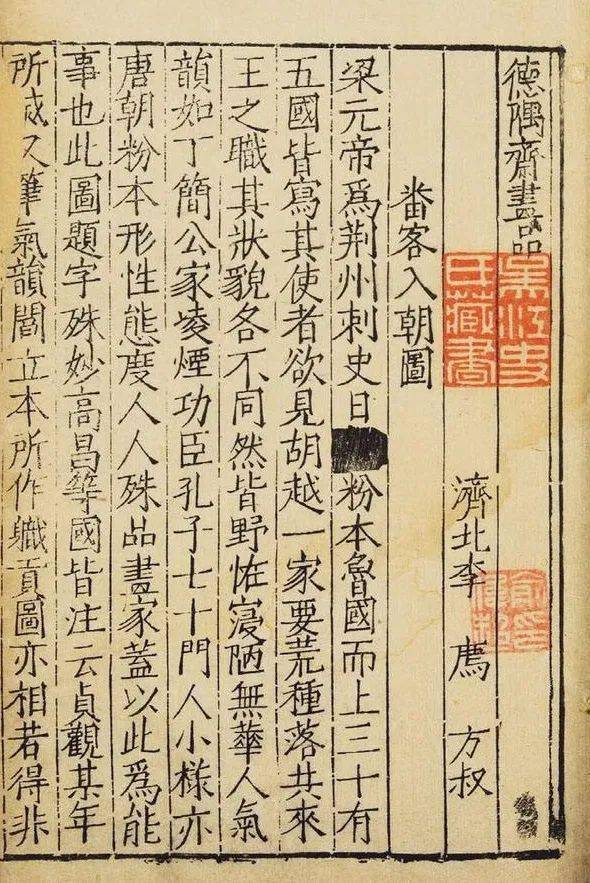 德隅齋畫品
吳江史
氏藏書
濟北李 廌 方叔
番客入朝圖
梁元帝爲荆州刺史日 粉本魯國而上三十有
五國皆寫其使者欲見胡越一家要荒種落共來
王之職其狀貌各不同然皆野恠寑陋無華人氣
韻如丁簡公家凌煙功臣孔子七十門人小様亦
唐朝粉本形性態度人人殊品畫家蓋以此爲能
事也此圖題字殊妙高昌等國皆注云貞觀某年
所成又筆氣韻閻立本所作職貢圖亦相若得非